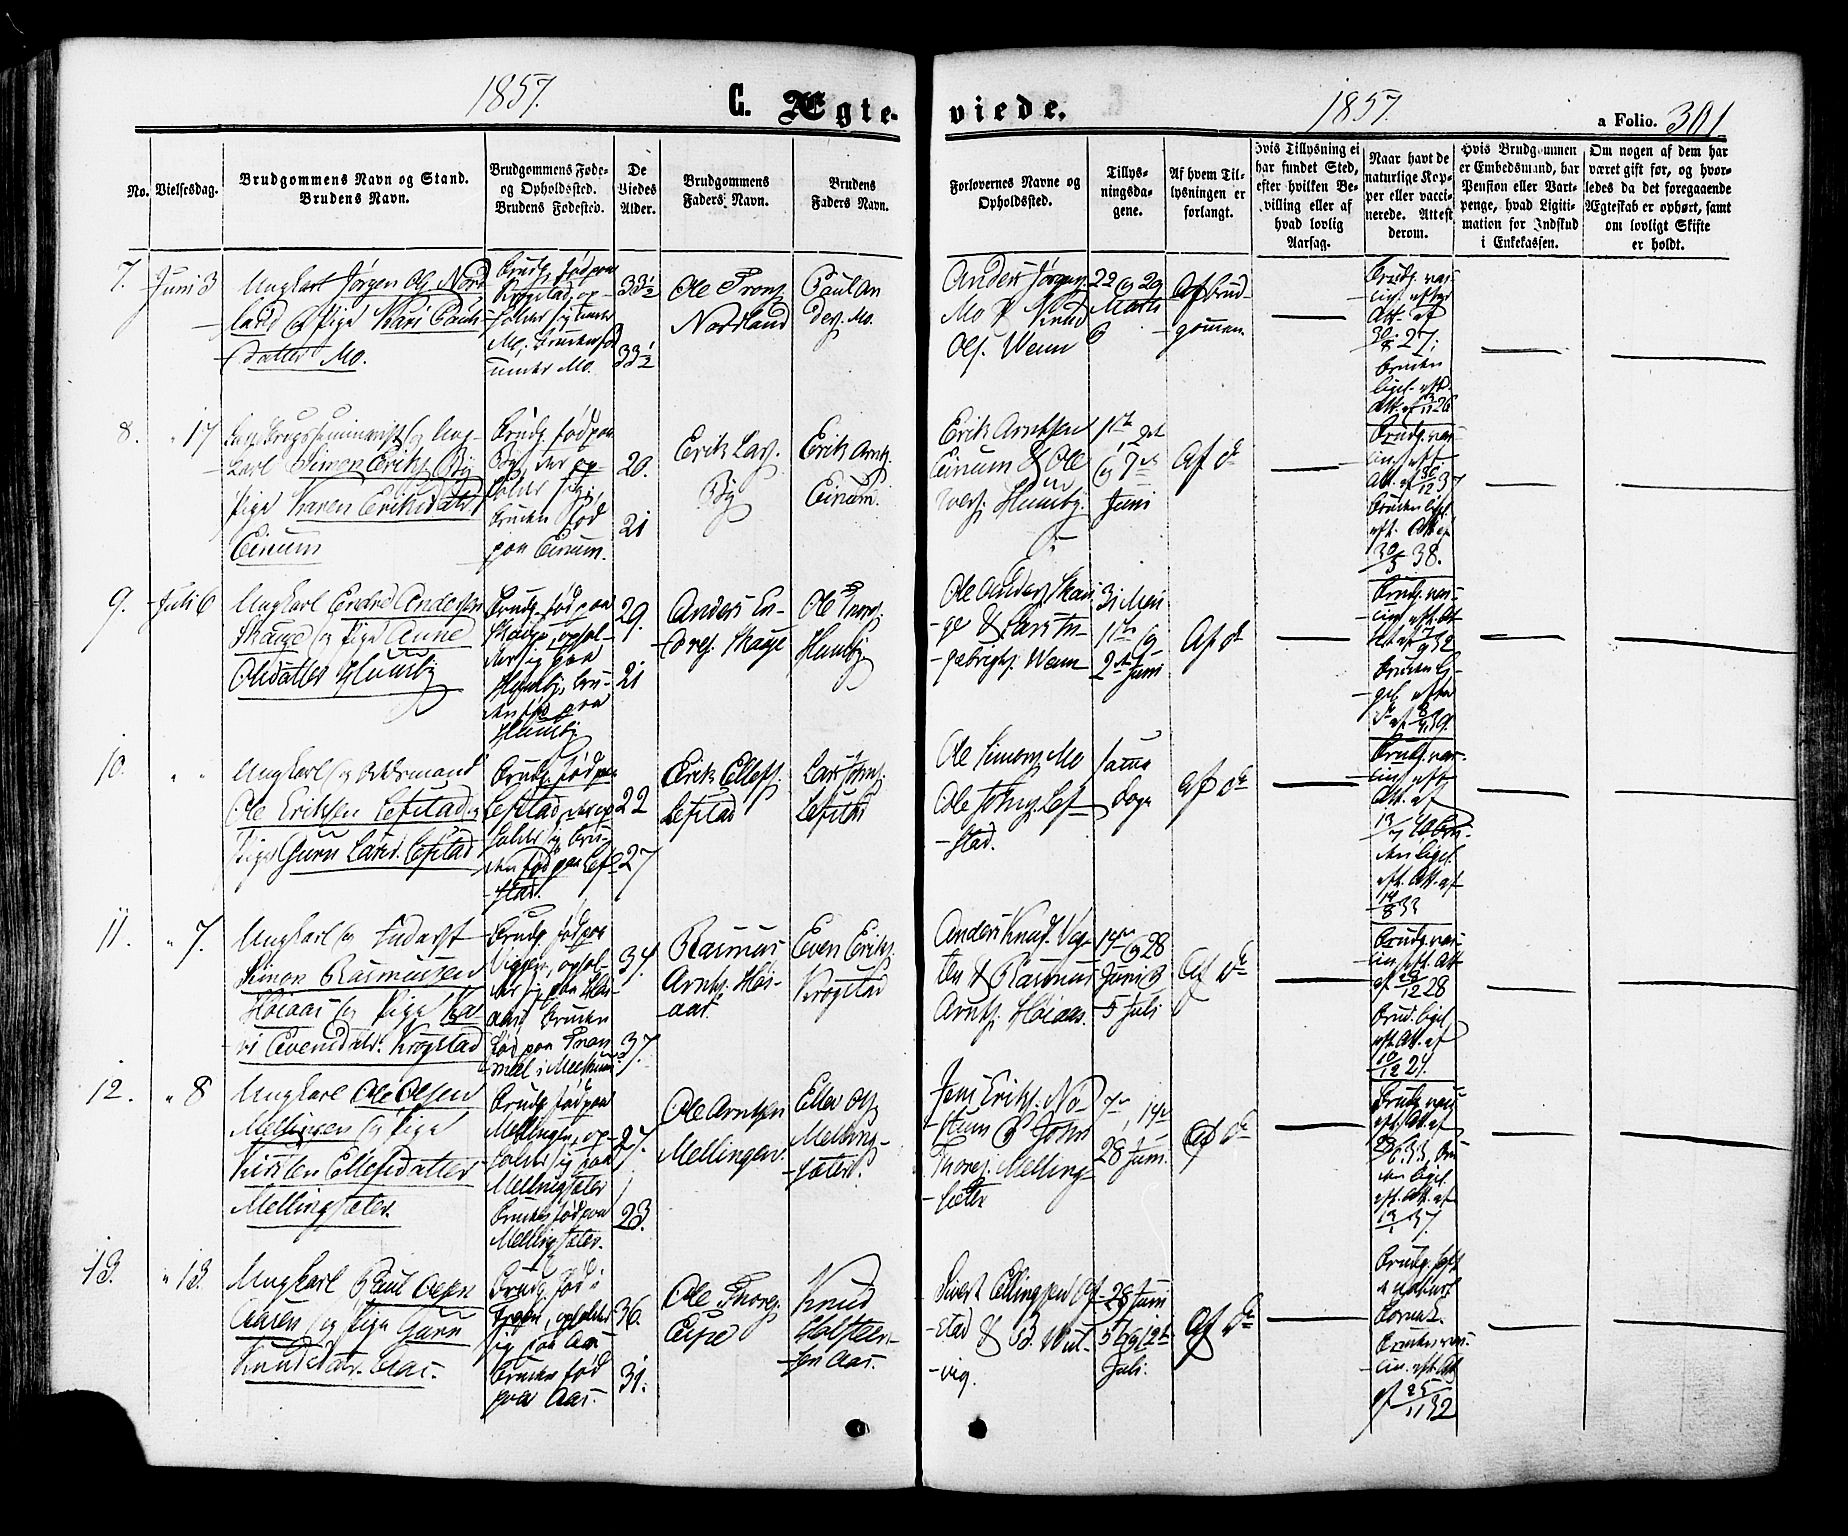 1857.
C. Ægte-
viede.
1857.
a Folio. 301
No.
Vielsesdag.
Brudgommens Navn og Stand.
Brudens Navn.
Brudgommens Føde-
og Opholdssted.
Brudens Fødested.
De
Viedes
Alder.
Brudgommens
Faders Navn.
Brudens
Faders Navn.
Forlovernes Navne og
Opholdssted.
Tillys-
ningsda-
gene.
Af hvem Til-
lysningen er
forlangt.
Hvis Tillysning ei
har fundet Sted,
efter hvilken Be-
villing eller af
hvad lovlig
Aarsag.
Naar havt de
naturlige Kop-
per eller vacci-
nerede. Attest
derom.
Hvis Brudgommen
er Embedsmand, har
Pension eller Vart-
penge, hvad Legiti-
mation for Indskud
i Enkekassen.
Om nogen af dem har
været gift før, og hvor-
ledes da det foregaaende
Ægteskab er ophørt, samt
om lovligt Skifte
er holdt.
7.
Juni 3
Ungkarl Jørgen Ols. Nord
land & Pige Kari Pauls-
datter Mo.
Brudg. født paa
Krogstad, op-
holder sig under
Mo, Bruden fød
under Mo.
33½
33½
Ole Trons.
Nordland
Paul An
ders. Mo.
Anders Jørgens.
Mo & Knud
Ols. Wenn
22 og 29
Marts
Af Brud-
gommen.
Brudg. vac-
cin. efter
Att. af
30/8 27;
Bruden
ligel. eft.
8.
" 17
karl Simon Eriks. By
Pige Karen Eriksdatr.
Eirum
Brudg. født paa
By, der op-
holder sig;
Bruden fød
paa Eirum.
20.
21
Erik Lars.
By
Erik Arnts.
Eirum.
Erik Arntsen
Eirum & Ole
Ivers. Humby.
1ste, 2de
og 7de
Juni
Af do
Brudg. vac-
cin. eft.
Att. af 30/12 37
Bruden ligel.
eft. Att. af
38.
9.
Juli 6
Ungkarl Endre Andersen
Skauge og Pige Anne
Olsdatter Humby
Brudg. født paa
Skauge, ophol-
der sig paa
Humby, Bru-
den fød paa
Humby
29.
21
Anders En-
dres. Skauge
Ole Ivers.
Humby
Ole Anders. Skau
ge & Karstn-
gabriels. Wenn
31 Mai
1ste og
2den Juni
Af do
10.
" "
Ungkarl og Odelsmand
Ole Eriksen Lefstad og
Pige Guru Larsd. Lefstad
Brudg. født paa
Lefstad, der op
holder sig, Bru-
den fød paa Lef-
stad.
22
27
Erik Ellefs.
Lefstad
Lars Johns.
Lefstad
Ole Simons. Mo
& Ole Johns. Lef-
stad.
samme
Dage
af do
Brudg. vac-
cin. eft.
Att. af
den ligel.
eft. Att. af
14/8 33
11.
" 7.
Ungkarl og Inderst
Simon Rasmussen
Høiaas og Pige Ka
ri Evensdatr. Krogstad
Brudg. født paa
Viggen, ophol-
der sig paa Høi-
aas, Bruden
fød paa Fram
mel i Meelhuus
34.
37.
Rasmus
Arnts. Høi-
aas.
Even Eriks.
Krogstad
Anders Knuds. Vig-
gen & Rasmus
Arnts. Høiaas.
14de og 28
Juni &
5 Juli
Af do
Brudg. vac-
cin. eft. Att
af 28/12 28
Brud. ligel.
eft. Att. af
10/12 21.
12.
" 8
Ungkarl Ole Olsen
Mellingen og Pige
Kirsten Ellefsdatter
Mellingsæter.
Brudg. født paa
Mellingen, op-
holder sig paa
Mellingsæter
Bruden fød paa
Mellingsæter.
27.
23.
Ole Arntsen
Mellingen.
Ellev Ols.
Melling-
sæter.
Jens Eriks. No-
stum & John
Thores. Melling-
sæter
7de, 14de
28 Juni.
Af do
Brudg. vac.
eft. Att. af
den ligel.
eft. Att. af
13/1 37.
13.
" 13.
Ungkarl Paul Olsen
Aaren og Pige Guru
Knudsdatr. Aas.
Brudg. fød i
opholder
sig paa Aas
Bruden fød
paa Aas.
36.
31.
Ole Thores.
Knud
Holsteen-
sen Aas.
Sivert Ellingsen Of-
stad & Ed. Wul-
vig.
28 Juni
5te og 12te
Juli.
Af do
Brudg. haft
d naturl.
Bruden vac-
cin. eft. Att
af 25/11 32